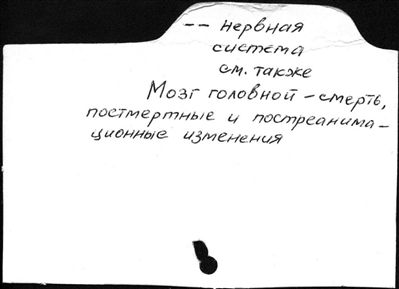 -- нервная
система
см. также
Мозг головной – смерть,
постмертные и постреанима-
ционные изменения